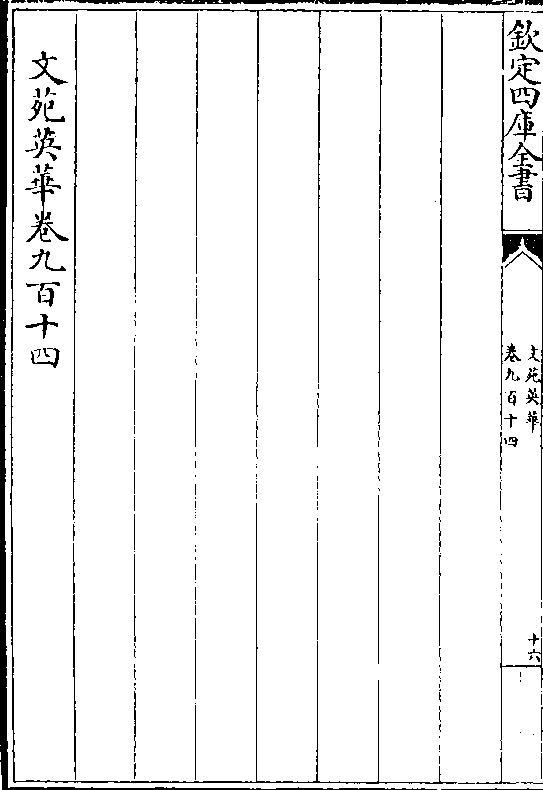 欽定四庫全書
文苑英華
卷九百十四
十六
文苑英華卷九百十四